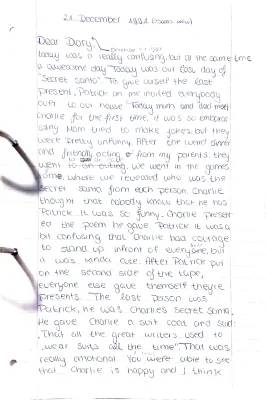 21. December 1991
Dear Diary,
today was a really confusing, but at the same time
a awesome day. Today was our last day of
"Secret Santa". To give ourself the last
present, Patrick an me invited everybody
over to our house. Today mum and dad meet
Charlie for the first time, it was so embarce
sing. Mom tried to make jokes, but they
were pretty unfunny. After the weird dinner
and friendly acting from my parents, they
went to an outing. We went in the games
ome, where we revealed who was the
secret santa from each person. Charlie
thought that nobody know that he has
Patrick. It was so funny. Charlie present
ed the poem he gave Patrick. It was a
bit confusing that Charlie had courage
to stand up infront of everyone, but
it was kinda cute. After Patrick put
on the second side of the tape,
everyone else gave themself they're
presents. The last person was
Patrick, he was Charlie's Secret Santa.
He gave Charlie a suit coat and said:
"That all the great writers used to
wear suits all the time". That was
really emotional. You were able to see
that Charlie is happy and I think